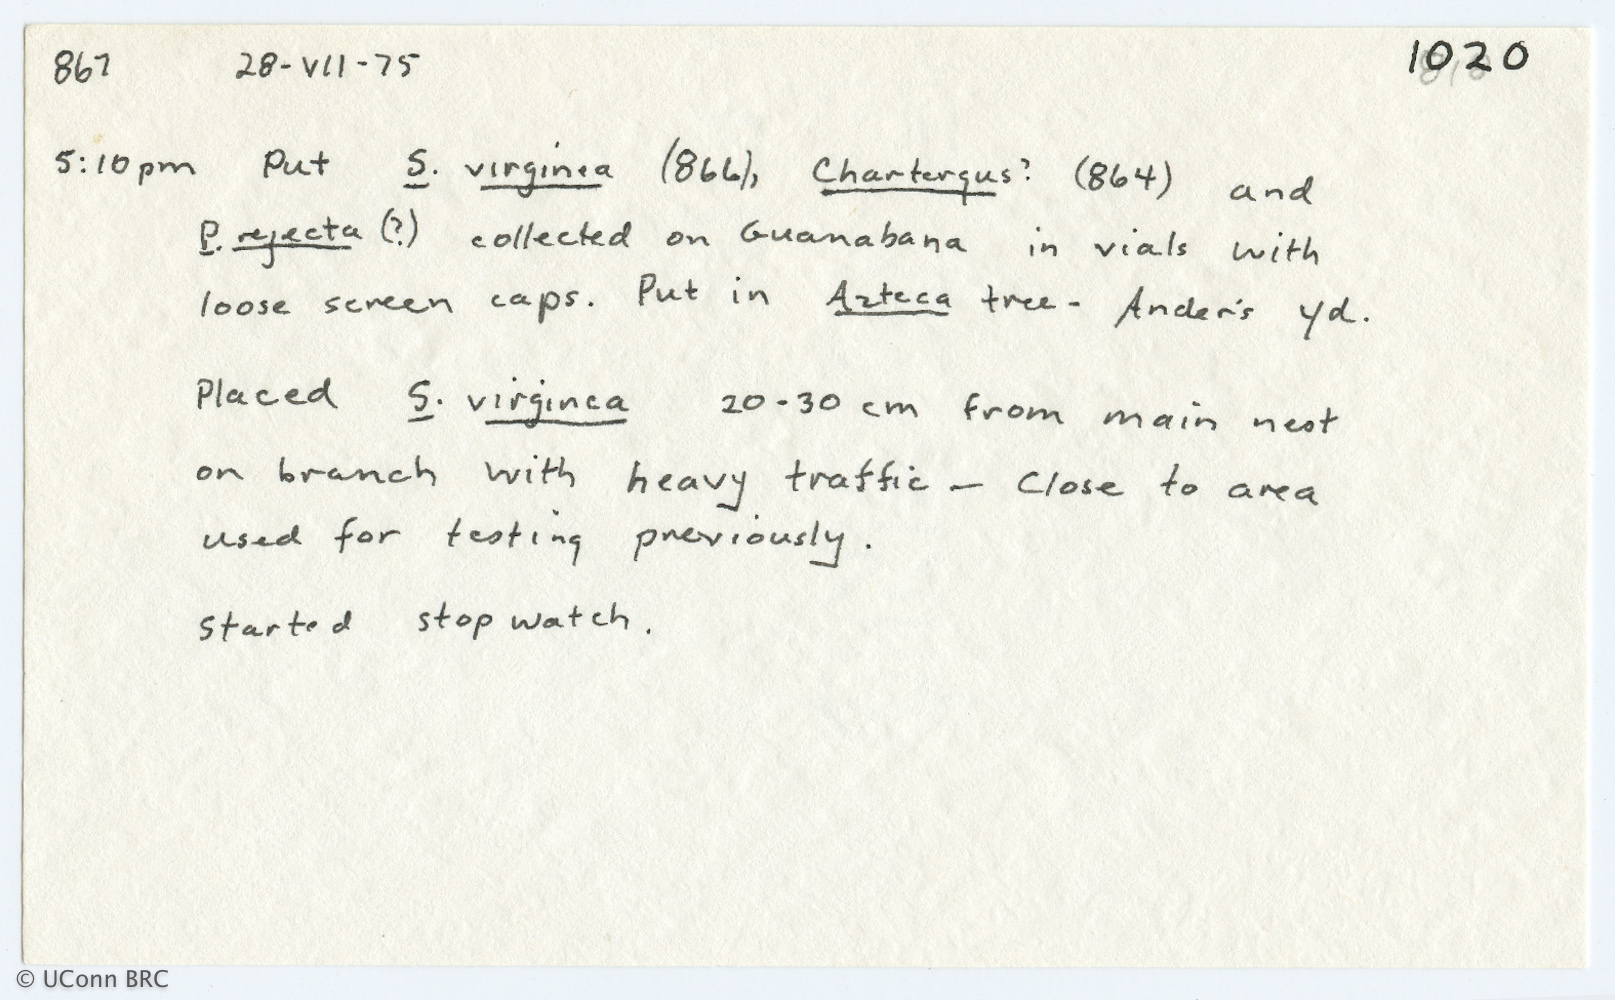 867 28-VII-75 1020
5:10pm Put S. virginea (866), Chartergus? (864) and
P. rejecta (?) collected on Guanabana in vials with
loose screen caps. Put in Azteca tree- Ander's yd.
Placed S. virginea 20-30 cm from main nest
on branch with heavy traffic - Close to area
used for testing previously.
Started stop watch.
© UConn BRC